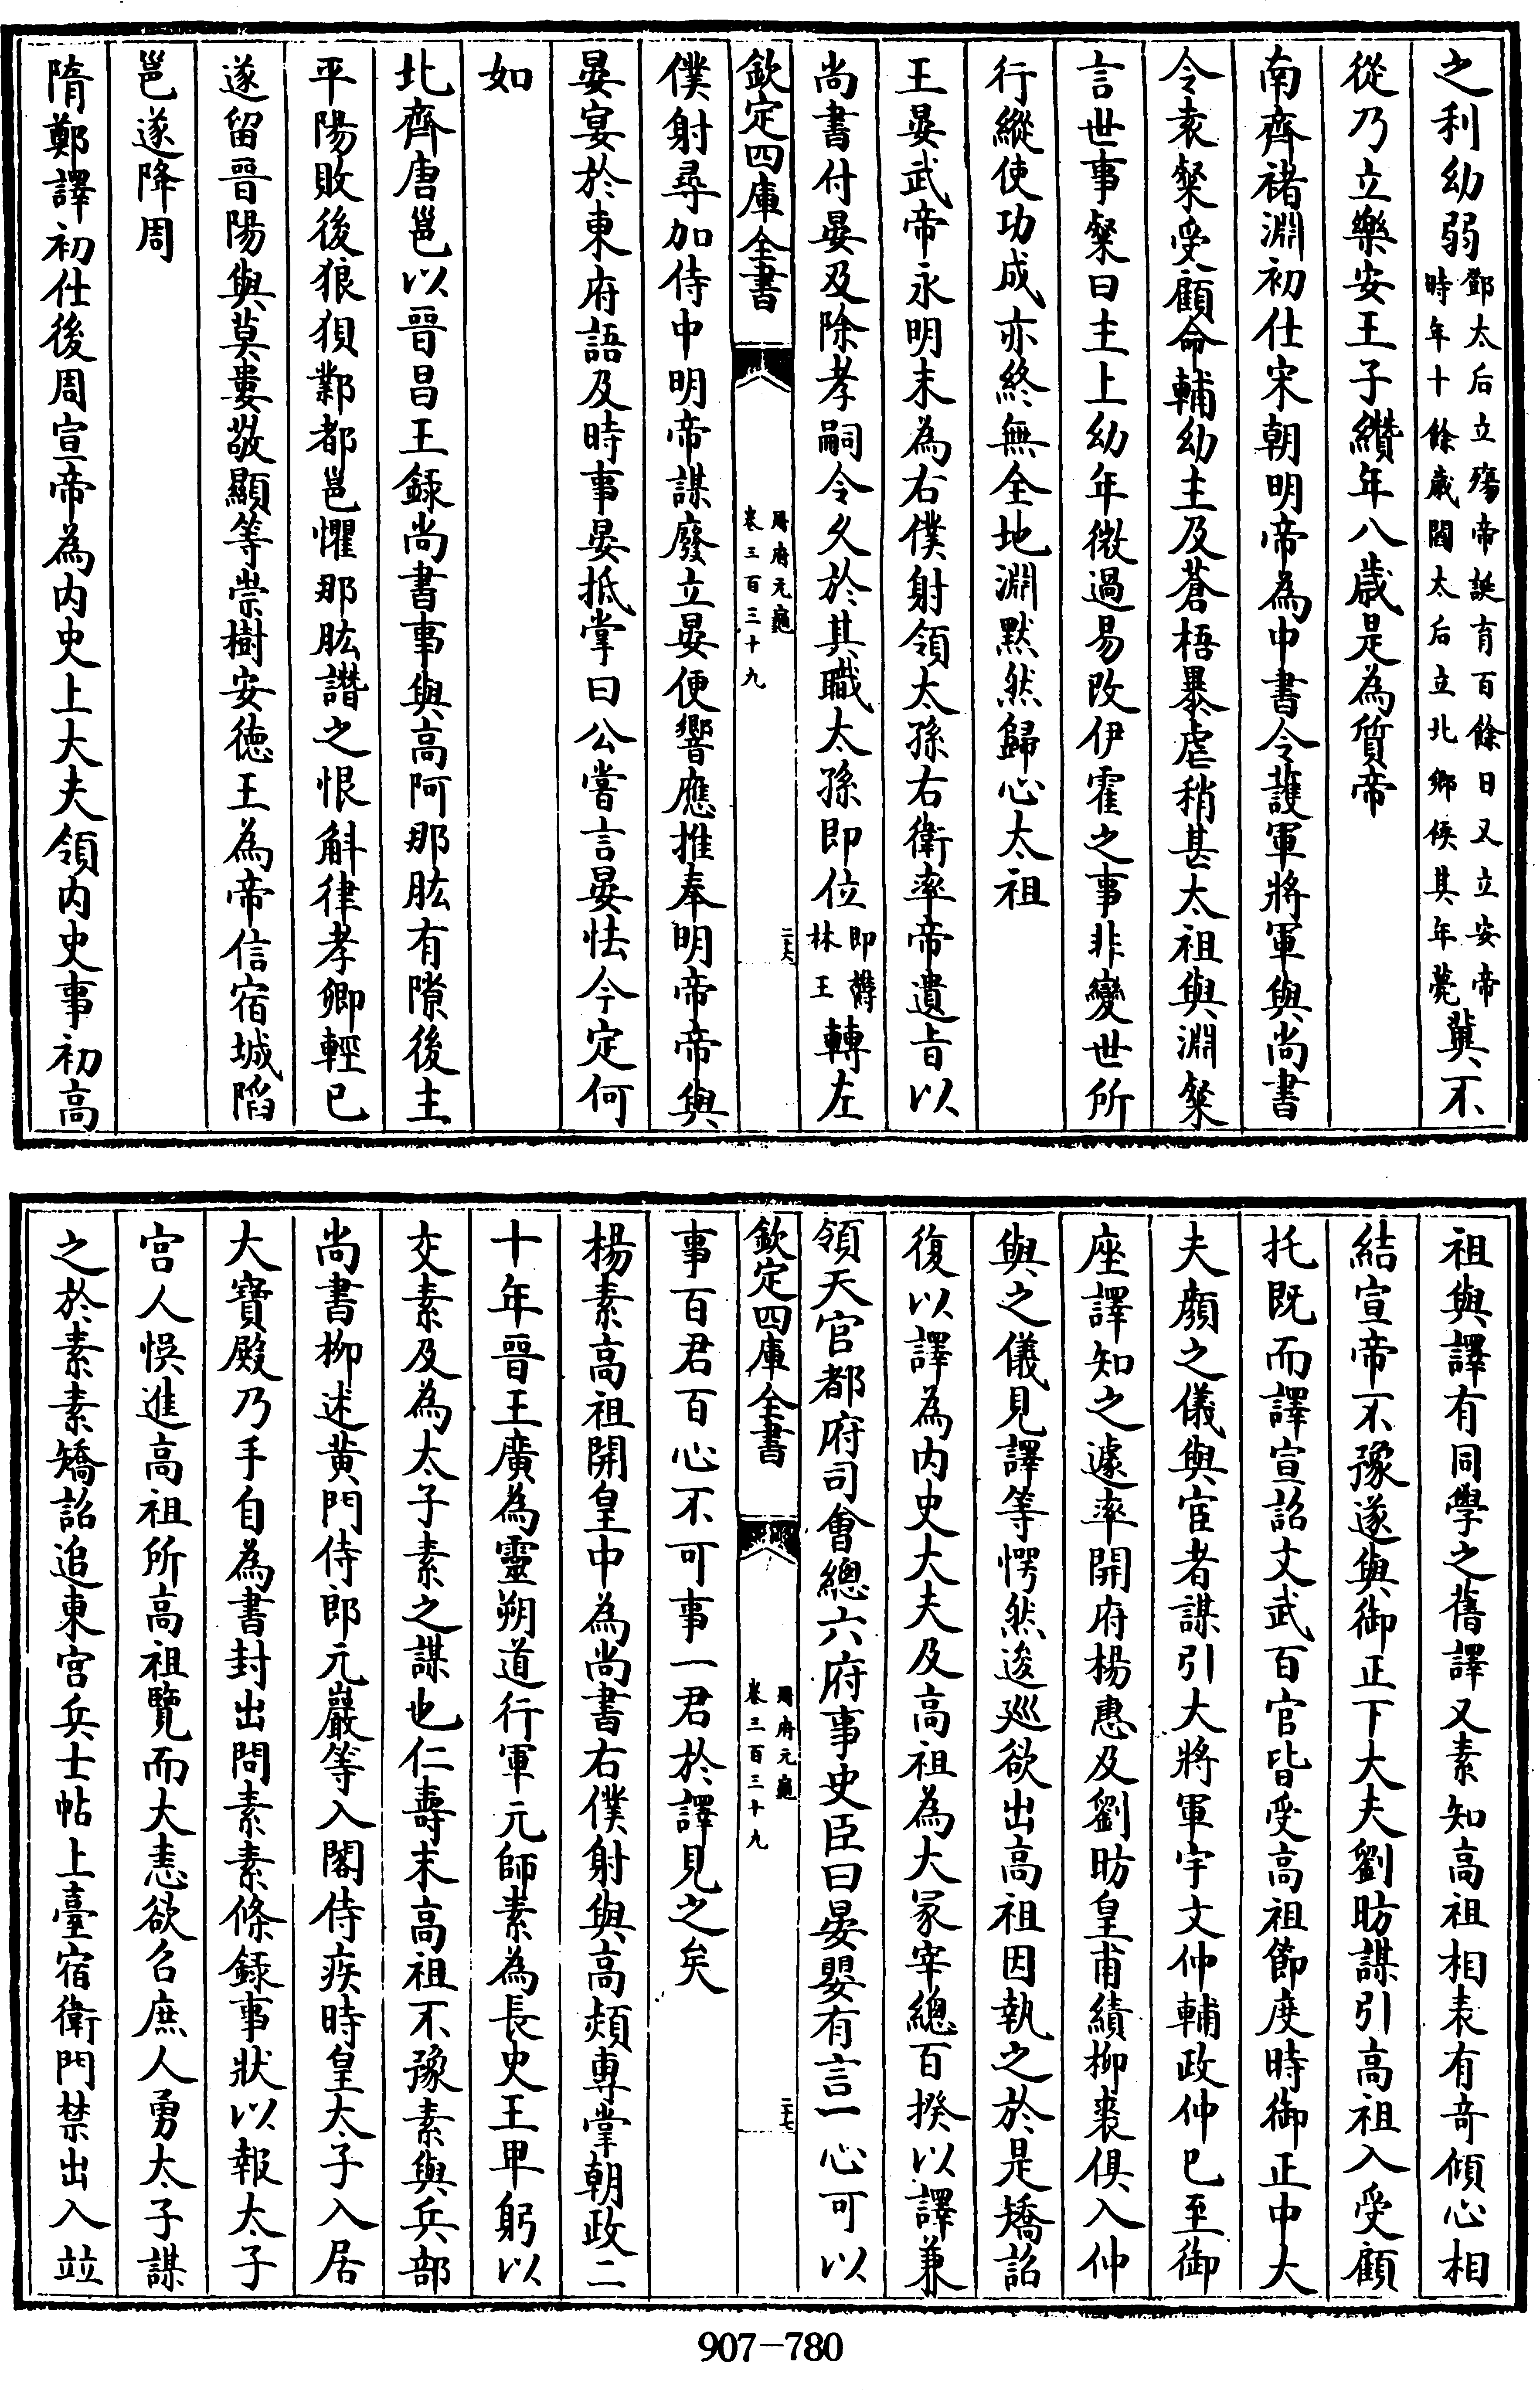 之利幼弱鄧太后立殤帝誕育百餘日又立安帝時年十餘歳閻太后立北鄉侯其年薨冀不
從乃立樂安王子纘年八歳是為質帝
南齊褚淵初仕宋朝明帝為中書令䕶軍將軍與尚書
令袁粲受顧命輔幼主及蒼梧暴虐稍甚太祖與淵粲
言世事粲曰主上幼年微過易改伊霍之事非變世所
行縱使功成亦終無全地淵黙然歸心太祖
王晏武帝永明末為右僕射領太孫右衛率帝遺旨以
尚書付晏及除孝嗣令久於其職太孫即位即欝林王轉左
欽定四庫全書
冊府元龜
卷三百三十九
二十六
僕射尋加侍中明帝謀廢立晏便響應推奉明帝帝與
晏宴於東府語及時事晏抵掌曰公嘗言晏怯今定何
如
北齊唐邕以晉昌王録尚書事與高阿那肱有隙後主
平陽敗後狼狽鄴都邕懼那肱譖之恨斛律孝卿輕已
遂留晉陽與莫婁敬顯等崇樹安徳王為帝信宿城陷
邕遂降周
隋鄭譯初仕後周宣帝為内史上大夫領内史事初高
祖與譯有同學之舊譯又素知高祖相表有奇傾心相
結宣帝不豫遂與御正下大夫劉昉謀引高祖入受顧
托既而譯宣詔文武百官皆受高祖節度時御正中大
夫顔之儀與宦者謀引大將軍宇文仲輔政仲已至御
座譯知之遽率開府楊惠及劉昉皇甫績柳裘俱入仲
與之儀見譯等愕然逡廵欲出高祖因執之於是矯詔
復以譯為内史大夫及高祖為大冢宰總百揆以譯兼
領天官都府司會總六府事史臣曰晏嬰有言一心可以
欽定四庫全書
冊府元龜
卷三百三十九
二十七
事百君百心不可事一君於譯見之矣
楊素高祖開皇中為尚書右僕射與高熲專掌朝政二
十年晉王廣為靈朔道行軍元師素為長史王甲躬以
交素及為太子素之謀也仁夀末高祖不豫素與兵部
尚書柳述黄門侍郎元巖等入閣侍疾時皇太子入居
大寳殿乃手自為書封出問素素條録事狀以報太子
宫人悮進高祖所高祖覽而大恚欲召庶人勇太子謀
之於素素矯詔追東宫兵士帖上臺宿衛門禁出入竝
907-780